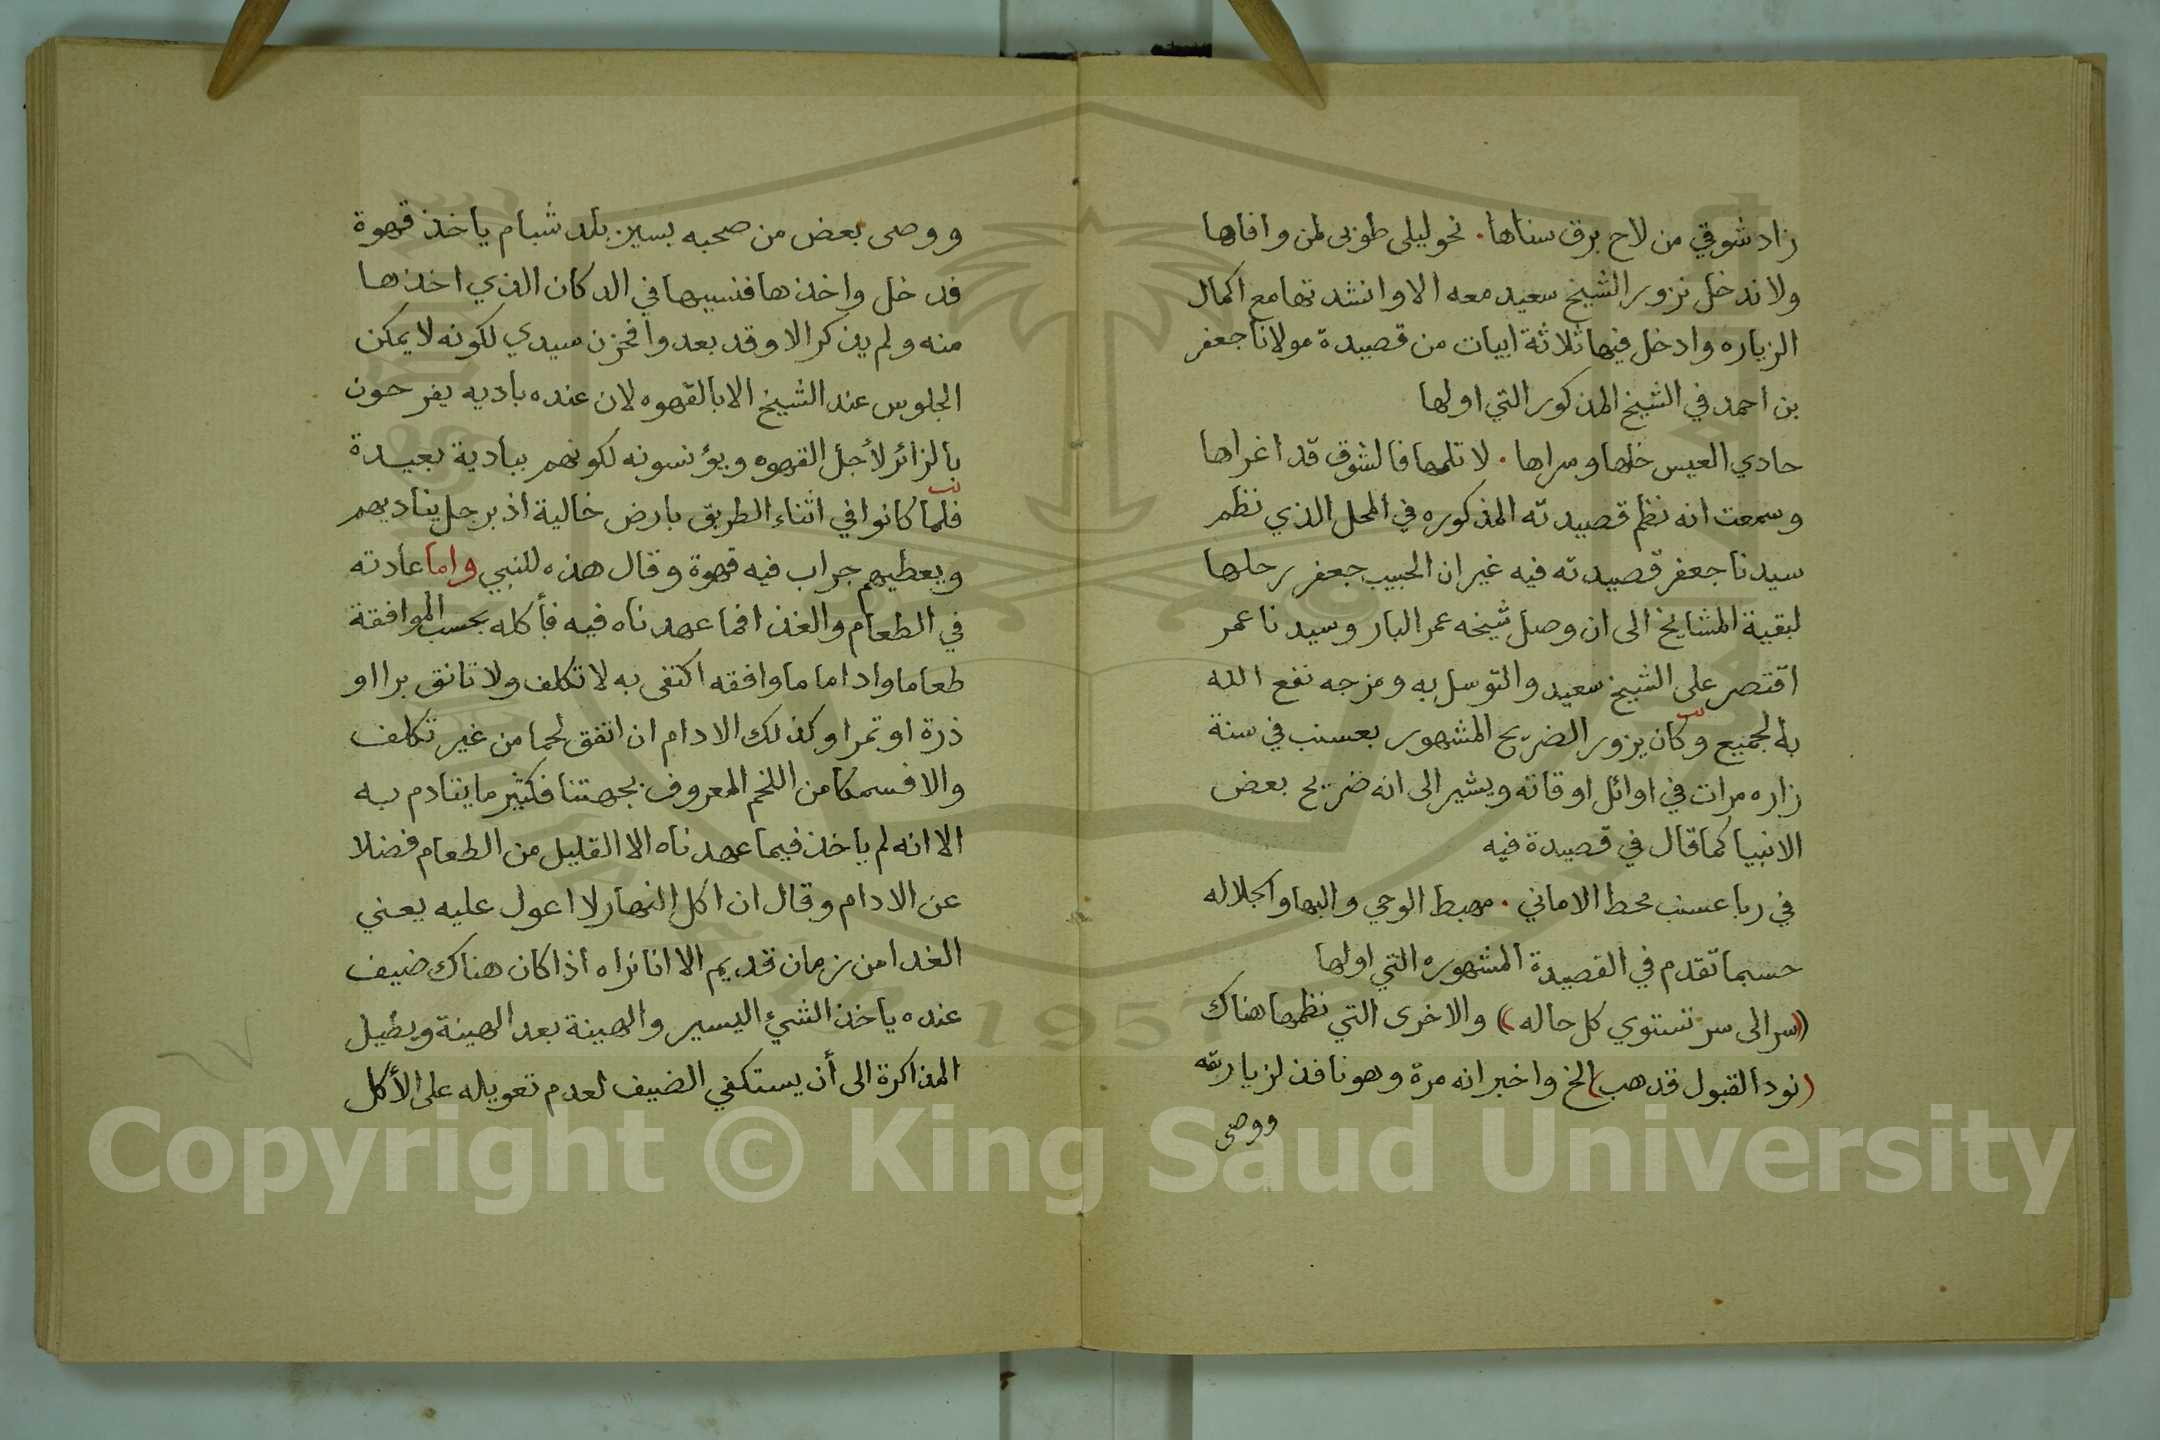 زاد شوقي من لاح برق سناها . نحو ليلى طوبى لمن وافاها
ولا ندخل نزور الشيخ سعيد معه الا وانشدتها مع اكمال
الزياره وادخل فيها ثلاثة ابيات من قصيدة مولانا جعفر
بن احمد في الشيخ المذكور التي اولها
حادي العيس خلها وسراها . لا تلمها فالشوق قد اغراها
وسمعت انه نظم قصيدته المذكوره في المحل الذي نظم
سيدنا جعفر قصيدته فيه غير ان الحبيب جعفر رحلها
لبقية المشايخ الى ان وصل شيخه عمر البار وسيدنا عمر
اقتصر على الشيخ سعيد والتوسل به ومزجه نفع الله
به الجميع وكان يزور الضريح المشهور بعسنب في سنة
زاره مرات في اوائل اوقاته ويشير الى انه ضريح بعض
الانبيا كما قال في قصيدة فيه
في ربا عسنب محط الاماني . مهبط الوحي والبها والجلاله
حسبما تقدم في القصيدة المشهوره التي اولها
((سر الى سر تستوي كل حاله)) والاخرى التي نظمها هناك
(نود القبول قد هب) الخ واخبر انه مرة وهو نافذ لزيارته
ووصى
ووصى بعض من صحبه بسير بلد شبام ياخذ قهوة
فدخل واخذها فنسيها في الدكان الذي اخذها
منه ولم يذكر الا وقد بعدوا فحزن سيدي لكونه لا يمكن
الجلوس عند الشيخ الا بالقهوه لان عنده باديه يفرحون
بالزائر لأجل القهوه ويؤنسونه لكونهم ببادية بعيدة
فلما كانوا في اثناء الطريق بارض خالية اذ برجل يناديهم
ويعطيهم جراب فيه قهوة وقال هذه للنبي واما عادته
في الطعام والغذا فما عهدناه فيه فأكله بحسب الموافقة
طعاما واداما ما وافقه اكتفى به لا تكلف ولا تانق برا او
ذرة او تمرا وكذلك الادام ان اتفق لحما من غير تكلف
والا فسمكا من اللخم المعروف بجهتنا فكثير ما يتادم به
الا انه لم ياخذ فيما عهدناه الا القليل من الطعام فضلا
عن الادام وقال ان اكل النهار لا اعول عليه يعني
الغدا من زمان قديم الا انا نراه اذا كان هناك ضيف
عنده ياخذ الشيء اليسير والهينة بعد الهينة ويطيل
المذاكرة الى أن يستكفي الضيف لعدم تعويله على الأكل
Copyright © King Saud University
1957